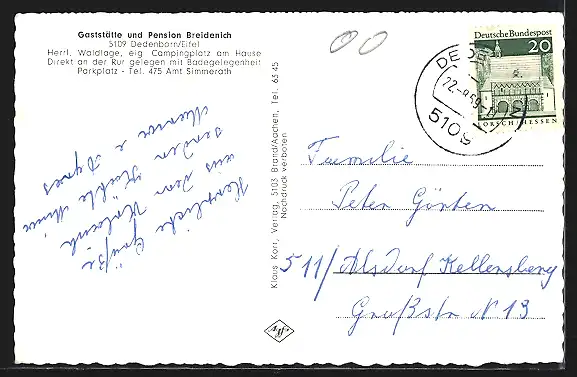 Gaststätte und Pension Breidenich
5109 Dedenborn/Eifel
Herrl. Waldlage, eig. Campingplatz am Hause
Direkt an der Rur gelegen mit Badegelegenheit
Parkplatz - Tel. 475 Amt Simmerath
Herzliche Grüße
aus dem
senden
Agnes
Klaus Korr, Verlag, 5103 Brand/Aachen, Tel. 65 45
Nachdruck verboten
Deutsche Bundespost
20
LORSCH/HESSEN
5109
Familie
Peter Görten
511/Alsdorf Kellersberg
Grußstr N 13
Agfa